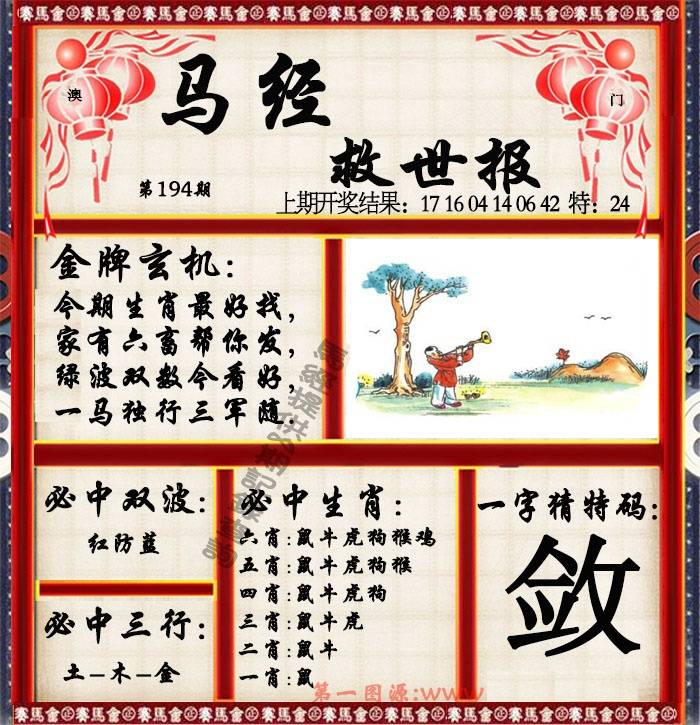 赛馬會 賽馬會 賽馬會 賽馬會
澳
门
马经
救世报
第194期
上期开奖结果：17 16 04 14 06 42 特：24
金牌玄机：
今期生肖最好找，
家有六畜帮你发，
绿波双数今看好，
一马独行三军随.
必中双波：
红防蓝
必中三行：
土-木-金
必中生肖：
六肖:鼠牛虎狗猴鸡
五肖:鼠牛虎狗猴
四肖:鼠牛虎狗
三肖:鼠牛虎
二肖:鼠牛
一肖:鼠
一字猜特码:
敛
第一图源:www